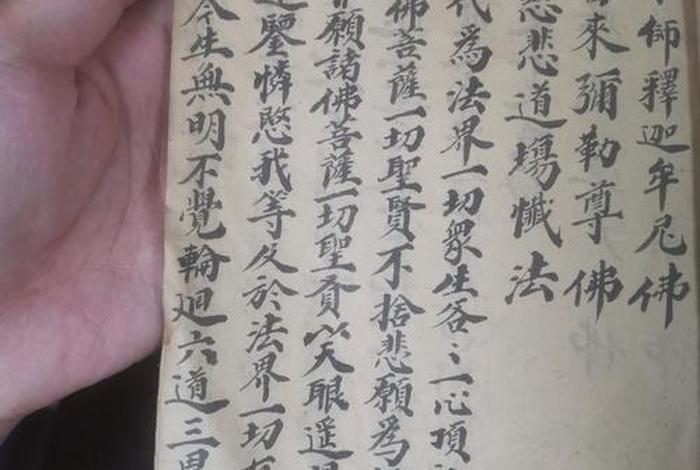 師釋迦牟尼佛
來彌勒尊佛
慈悲道場懺法
代為法界一切眾生各〻一心頂
佛菩薩一切聖賢不捨悲願為
願諸佛菩薩一切聖賢以天眼遥
鑒憐愍我等及於法界一切
今生無明不覺輪廻六道三界